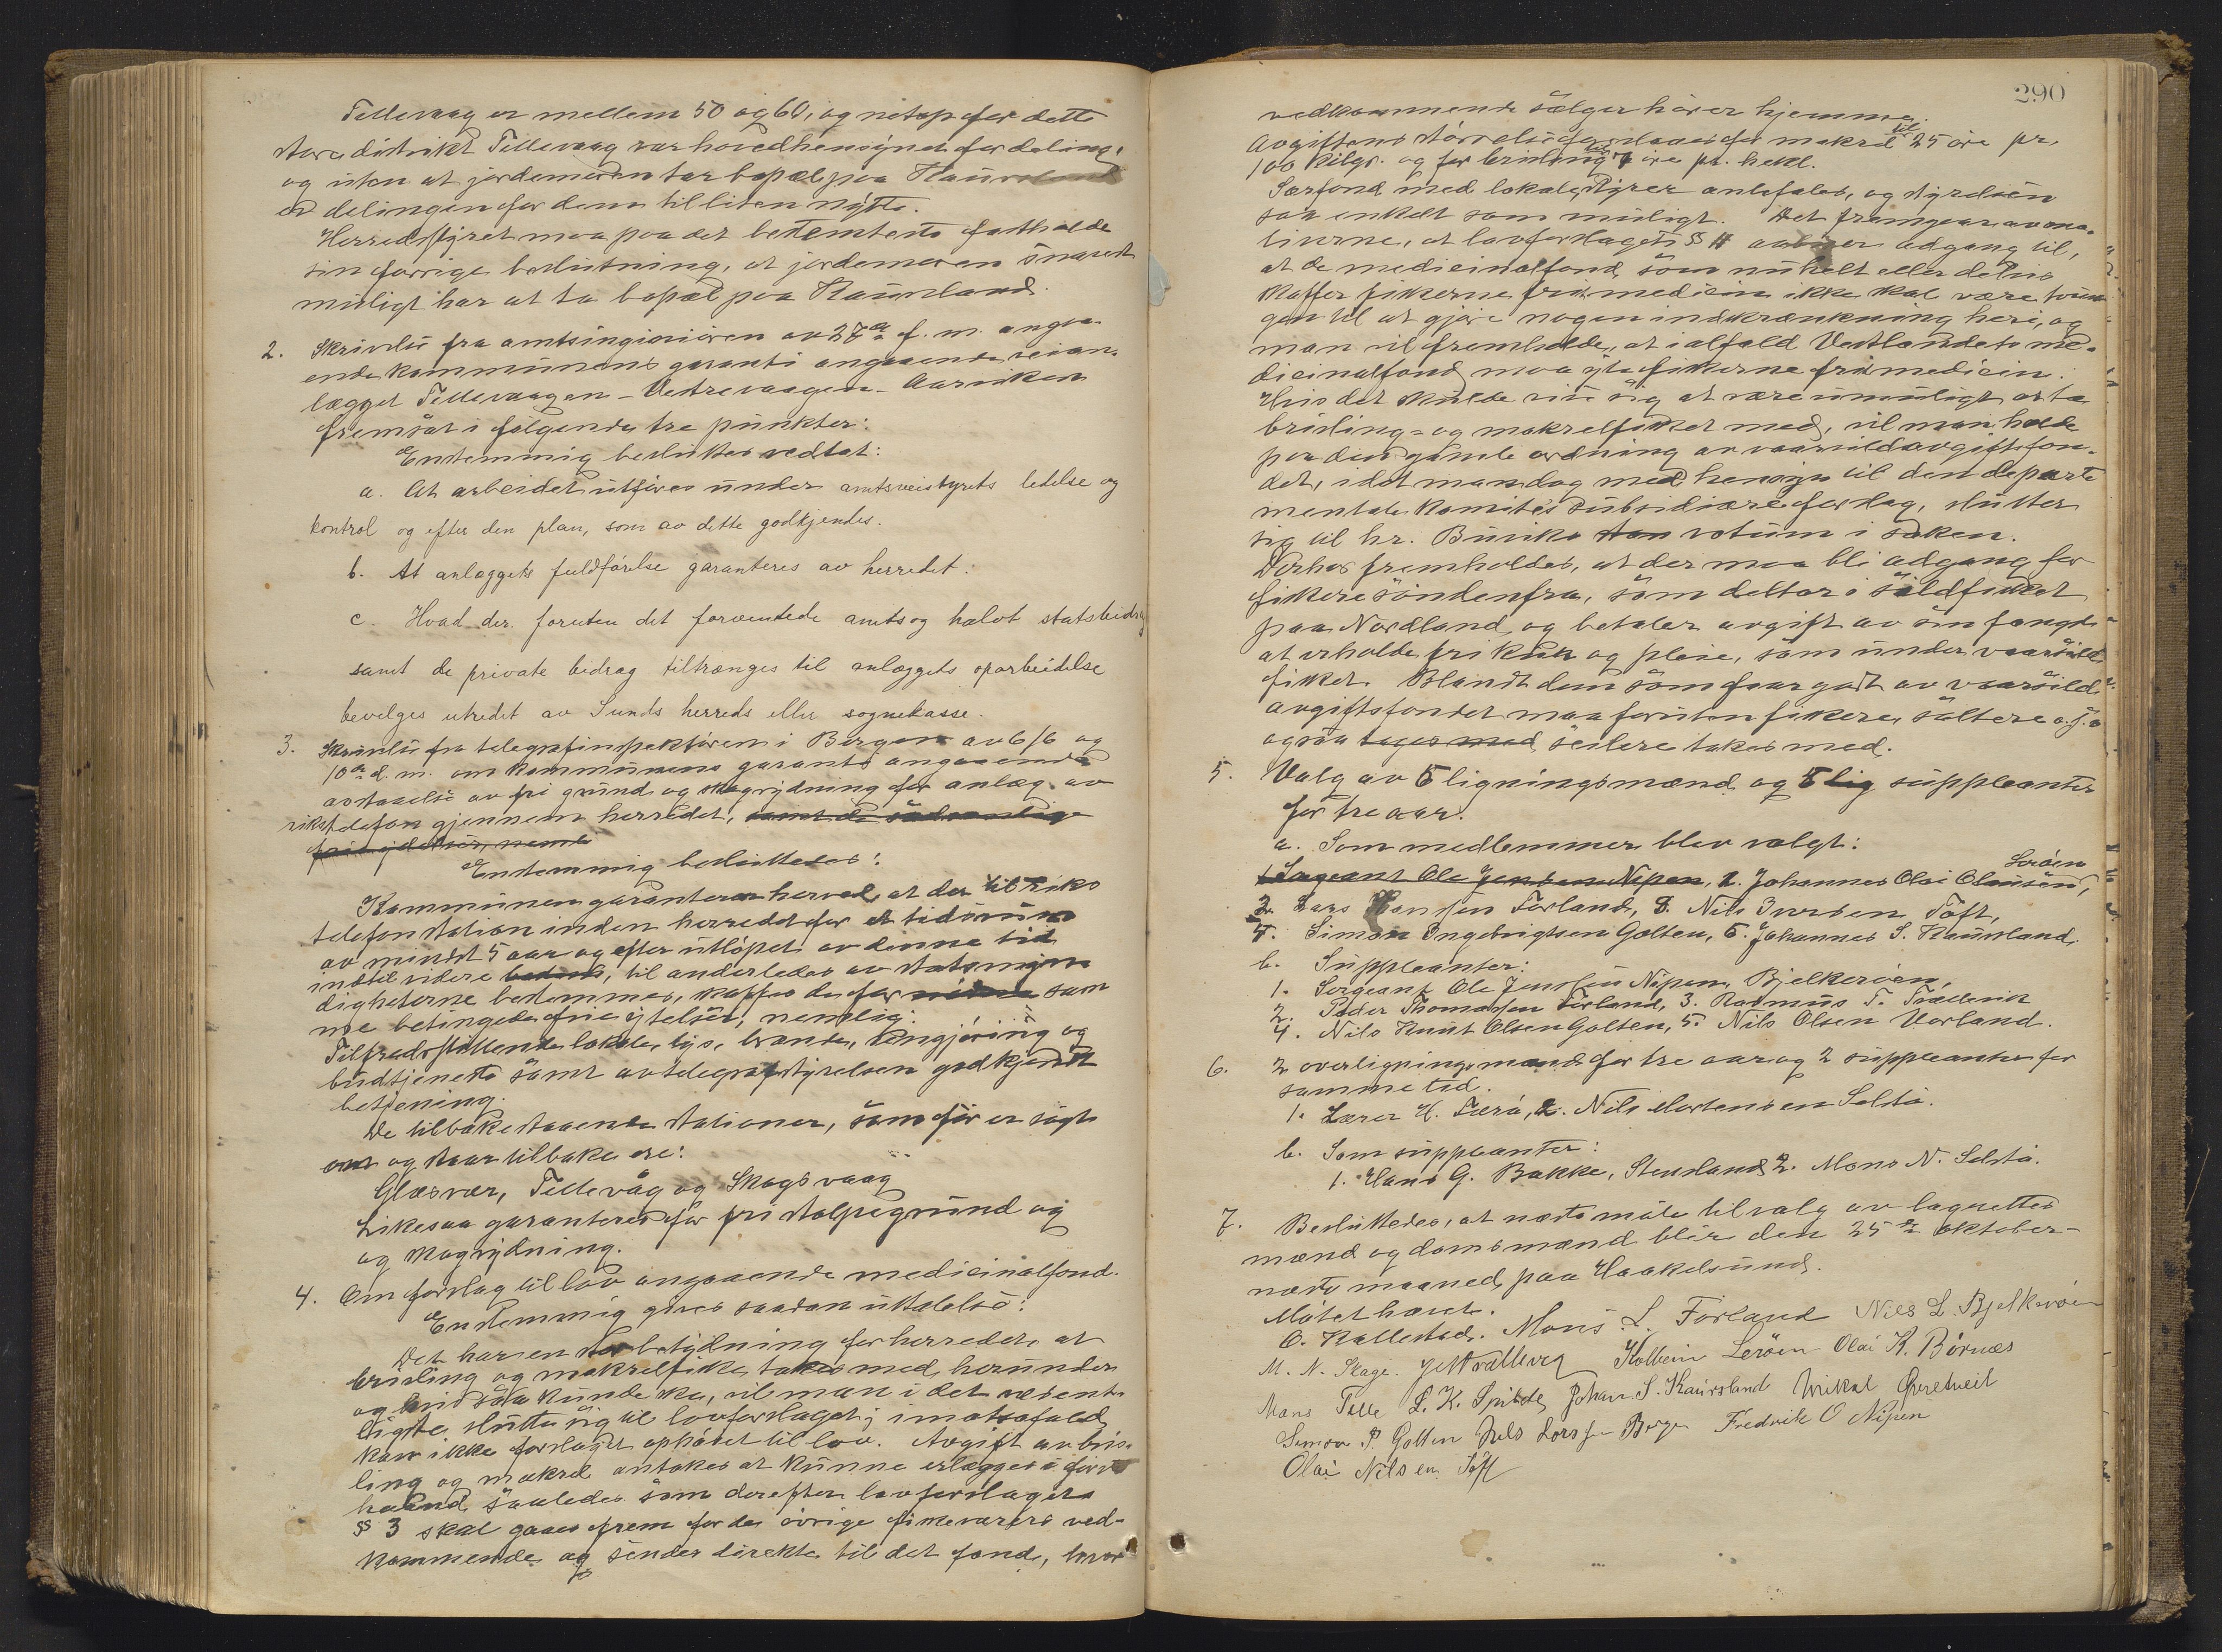 Tellevaag er mellem 50 og 60, og netop for dette
store distrikt Tellevaag var hovedhensynet for deling,
og uten at jordemoren tar bopæl paa Kausland
er delingen for dem til liten nytte.
Herredsstyret maa paa det bestemteste fastholde
sin forrige beslutning, at jordemoren snarest
muligt har at ta bopæl paa Kausland.
2. Skrivelse fra amtsingeniøren av 27de f. m. angaa-
ende kommunens garanti angaaende veian-
lægget Tellevaagen - Vestrevaagen - Aarviken
fremsat i følgende tre punkter:
Enstemmig beslutes vedtat:
a. At arbeidet utføres under amtsveistyrets ledelse og
kontrol og efter den plan, som av dette godkjendes.
b. At anlæggets fuldførelse garanteres av herredet:
c. Hvad der foruten det forventede amts og halvt statsbidrag
samt de private bidrag tiltrænges til anlæggets oparbeidelse
bevilges utredet av Sunds herreds eller sognekasse.
3. Skrivelse fra telegrafinspektøren i Bergen av 6/6 og
10de d. m. om kommunens garanti angaaende
avstaaelse av fri grund og skogrydning for anlæg av
rikstelefon gjennem herredet, samt de sædvanlige
friytelser, nemli
Enstemmig besluttedes:
Kommunen garanterer herved, at der til riks
telefonstation inden herredet for et tidsrum
av mindst 5 aar og efter utløpet av denne tid
indtil videre, til anderledes av statsmyn
dighederne bestemmes, skaffes de for samme
betingede frie ytelser, nemlig:
Tilfredsstillende lokale, lys, brænde, rengjøring og
budtjeneste samt av telegrafstyrelsen godkjendt
betjening.
De tilbakestaaende stationer, som før er søgt
om og staar tilbake er:
Glæsvær, Tellevåg og Skogsvaag
Likesaa garanteres for fri stolpegrund og
og skogrydning.
4. Om forslag til lov angaaende medicinalfond.
Enstemmig gives saadan uttalelse:
Det har en stor betydning for herredet, at
brisling og makrelfiske takes med herunder
og hvis saa kunde ske, vil man i det væsent
ligste slutte sig til lovforslaget; i motsat fald
kan ikke forslaget ophøiet til lov. Avgift av bris-
ling og makrel antakes at kunne erlægges i første
haand, saaledes som derefter lovforslagets
§ 3 skal gaaes frem for de øvrige fiskevarers ved-
kommende og sendes direkte til det fond, hvor
290
vedkommende sælger hører hjemme.
Avgiftens størrelse foreslaaes for makrel til 25 øre pr.
100 kilgr. og for brisling øre pr. hekl.
Særfond med lokale styrer anbefales, og styrelsen
saa enkelt som muligt. Det fremgaar av mo-
tiverne, at lovforslagets § 11 aapner adgang til,
at de medicinalfond, som nu helt eller delvis
skaffer fiskerne fri medicin ikke skal være tvun
gen til at gjøre nogen indskrænkning heri, og
man vil fremholde, at ialfald Vestlandets me-
dicinalfond maa yte fiskerne fri medicin.
Hvis det skulde vise sig at være umuligt at ta
brisling- og makrelfisket med, vil man holde
paa den gamle ordning av vaarsildavgiftsfon-
det, idet man dog med hensyn til den departe
mentale komités subsidiære forslag, slutter
sig til hr. Buviks votum i saken.
Derhos fremholdes, at der maa bli adgang for
fiskere søndenfra, som deltar i sildfisket
paa Nordland og betaler avgift av sin fangst
at erholde fri kur og pleie, som under vaarsild
fisket. Blandt dem som faar godt av vaarsild-
avgiftsfondet maa foruten fiskere, saltere o. s. v.
ogsaa tages med seilere takes med.
5. Valg av 5 ligningsmænd og 5 lig suppleanter
for tre aar.
a. Som medlemmer blev valgt:
1 Sergeant Ole Jensen Nipen, 1. Johannes Olai Olaisen, Lerøen
2. Lars Hansen Forland, 3. Nils Iversen Toft,
4. Simon Ingebrigtsen Golten, 5. Johannes S. Kausland.
b. Suppleanter:
1. Sergeant Ole Jensen Nipen, Bjelkerøen,
2. Peder Thomassen Forland, 3. Rasmus T. Træderik
4. Nils Knut Olsen Golten, 5. Nils Olsen Vorland.
6. 2 overligningsmænd for tre aar og 2 suppleanter for
samme tid.
1. Lærer H. Færø, 2. Nils Mortensen Selstø.
b. Som suppleanter:
1. Hans G. Bakke, Steusland, 2. Mons N. Selstø.
7. Besluttedes, at næste møte til valg av lagrettes
mænd og domsmænd blir den 25de oktober -
næste maaned paa Haakelsund.
Møtet hævet.
O. Kallestad. Mons L. Forland Nils L. Bjelkerøen
M. N. Skage. Kolbein Lerøen Olai K. Børnæs
Mons Telle L. K. Spilde Johan S. Kausland Mikal
Simon P. Golten Nils Larssen Berge Fredrik O Nipen
Olai Nilsen Toft